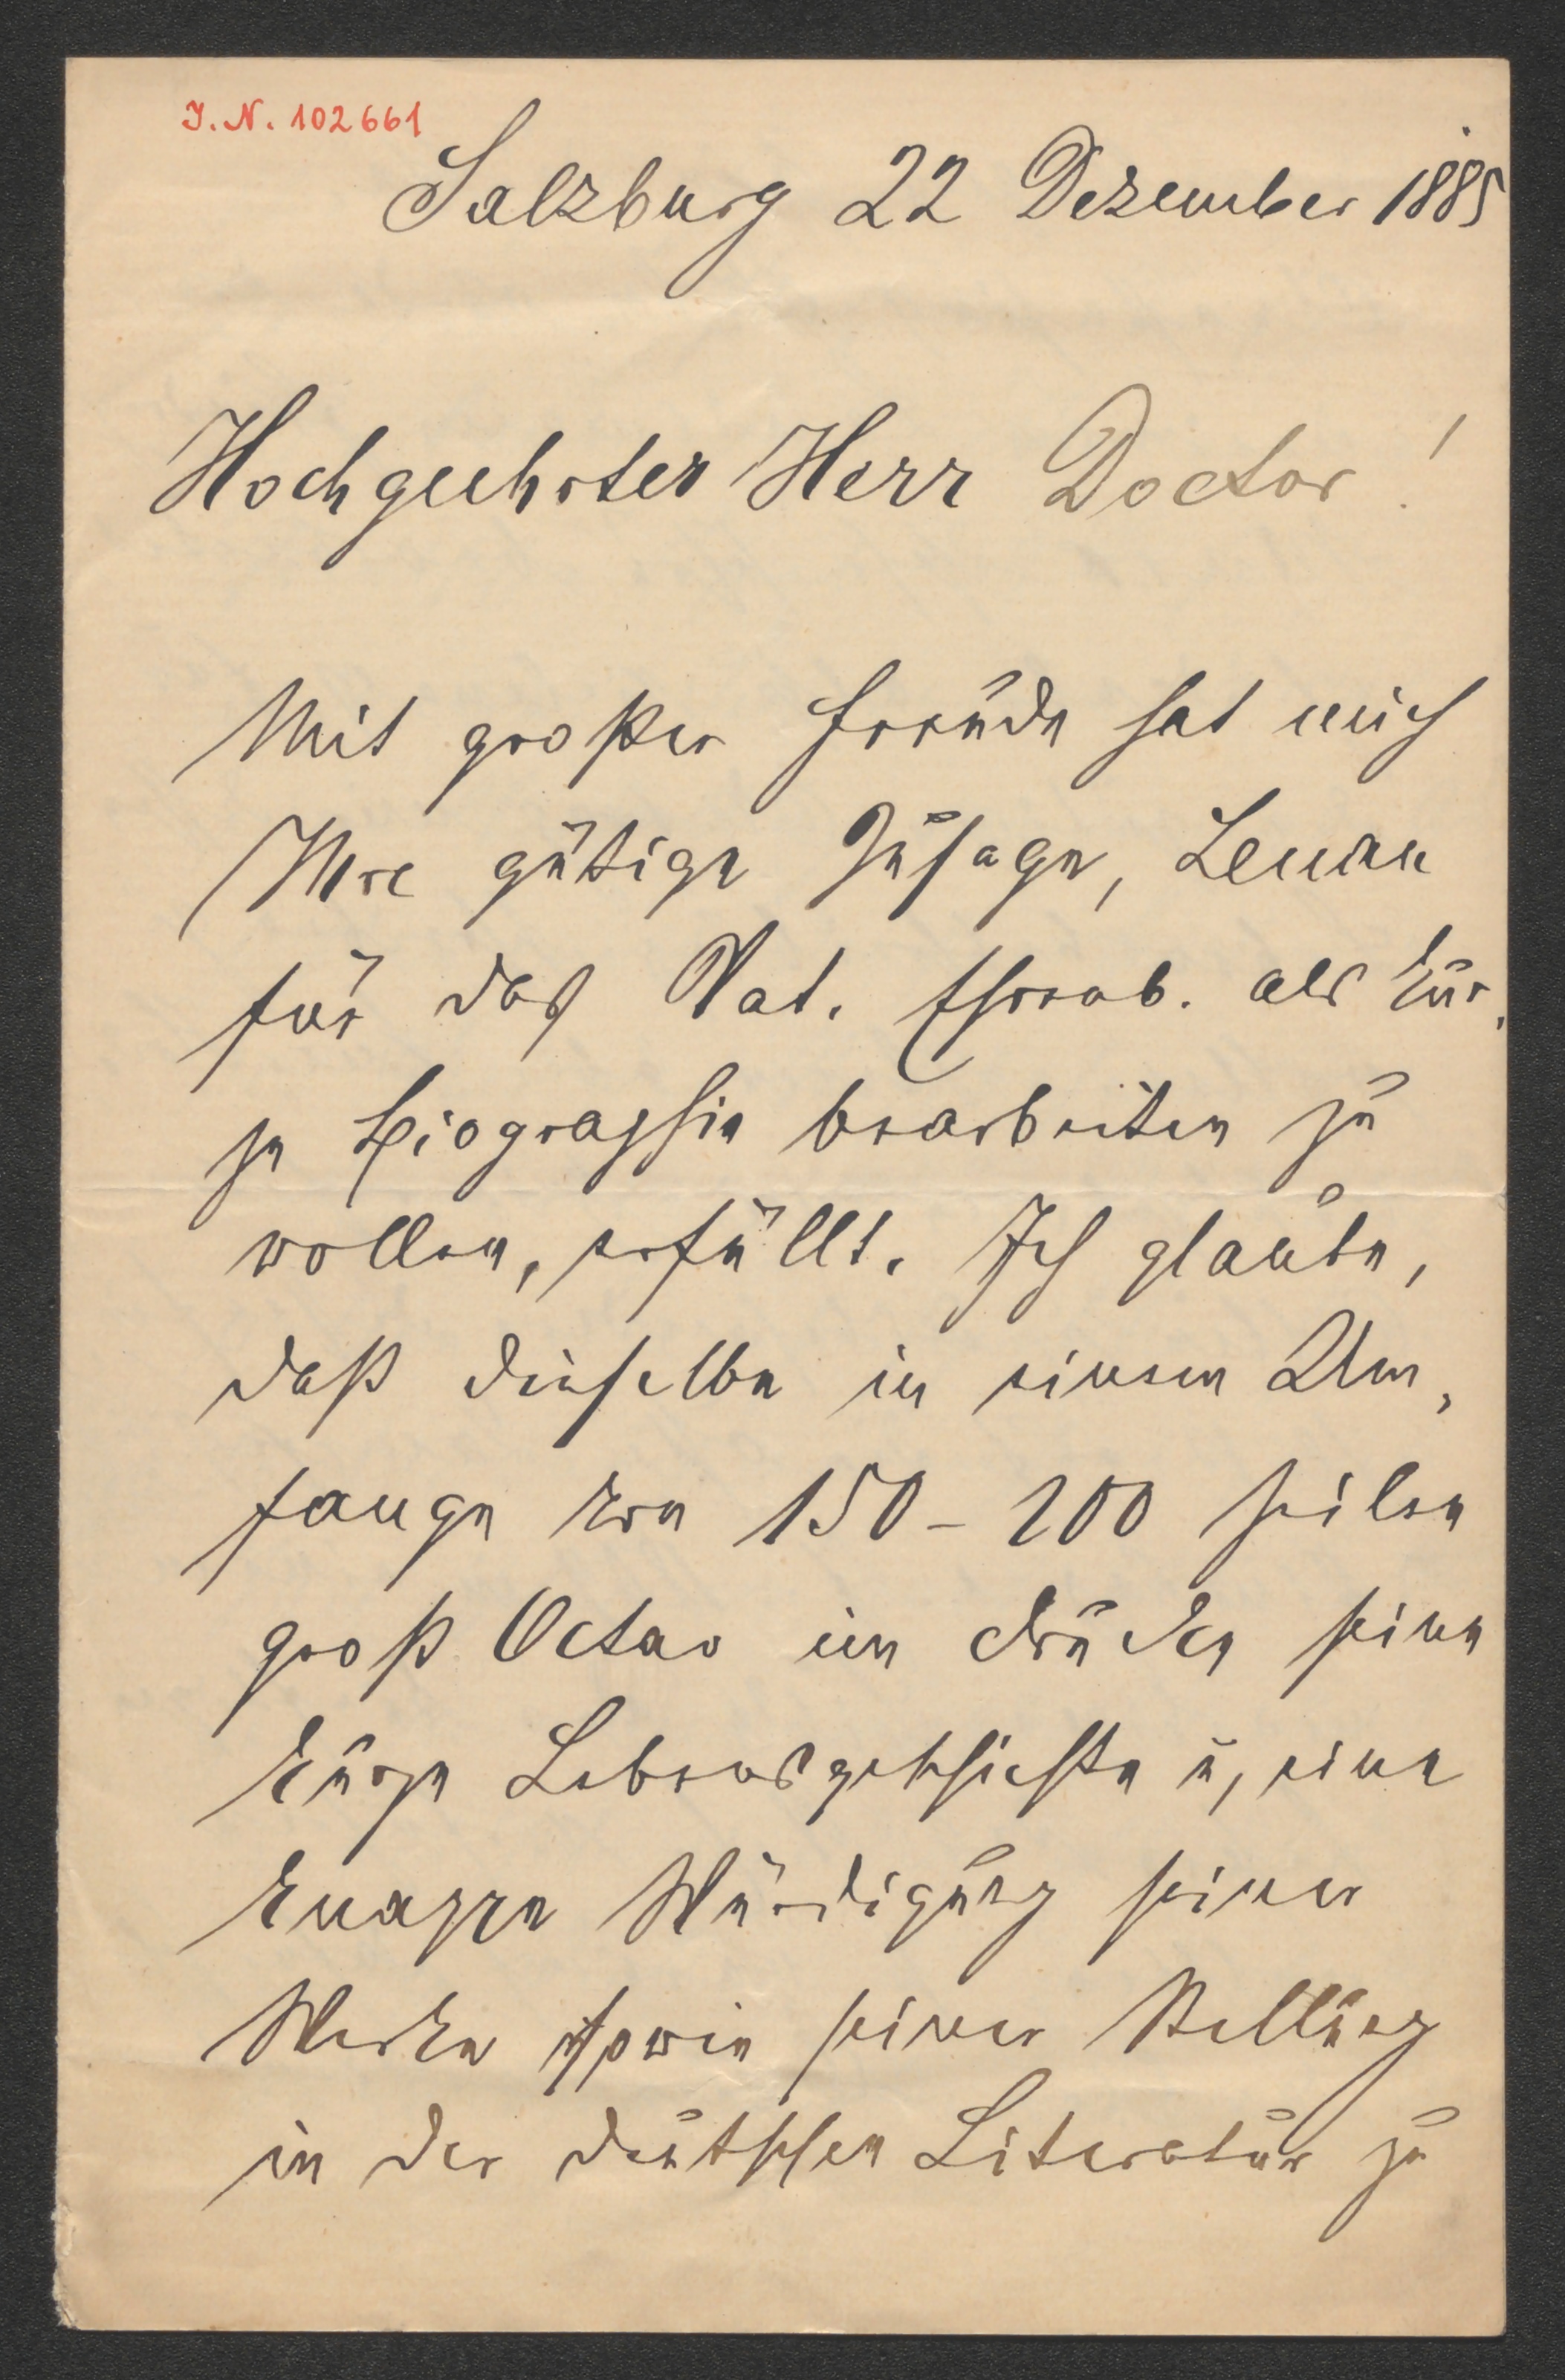 I.N. 102661
Salzburg 22 Dezember 1885
Hochgeehrter Herr Doctor!
Mit großer Freude hat mich
Ihre gütige Zusage, Lenau
für das Nat. Ehrenb. als kur-
ze Biographie bearbeiten zu
wollen, erfüllt. Ich glaube,
daß dieselbe in einem Um-
fange von 150-200 Zeilen
groß Octav im Drucke seine
kurze Lebensgeschichte u, eine
knappe Würdigung seiner
Werke sowie seiner Stellung
in der deutschen Literatur zu